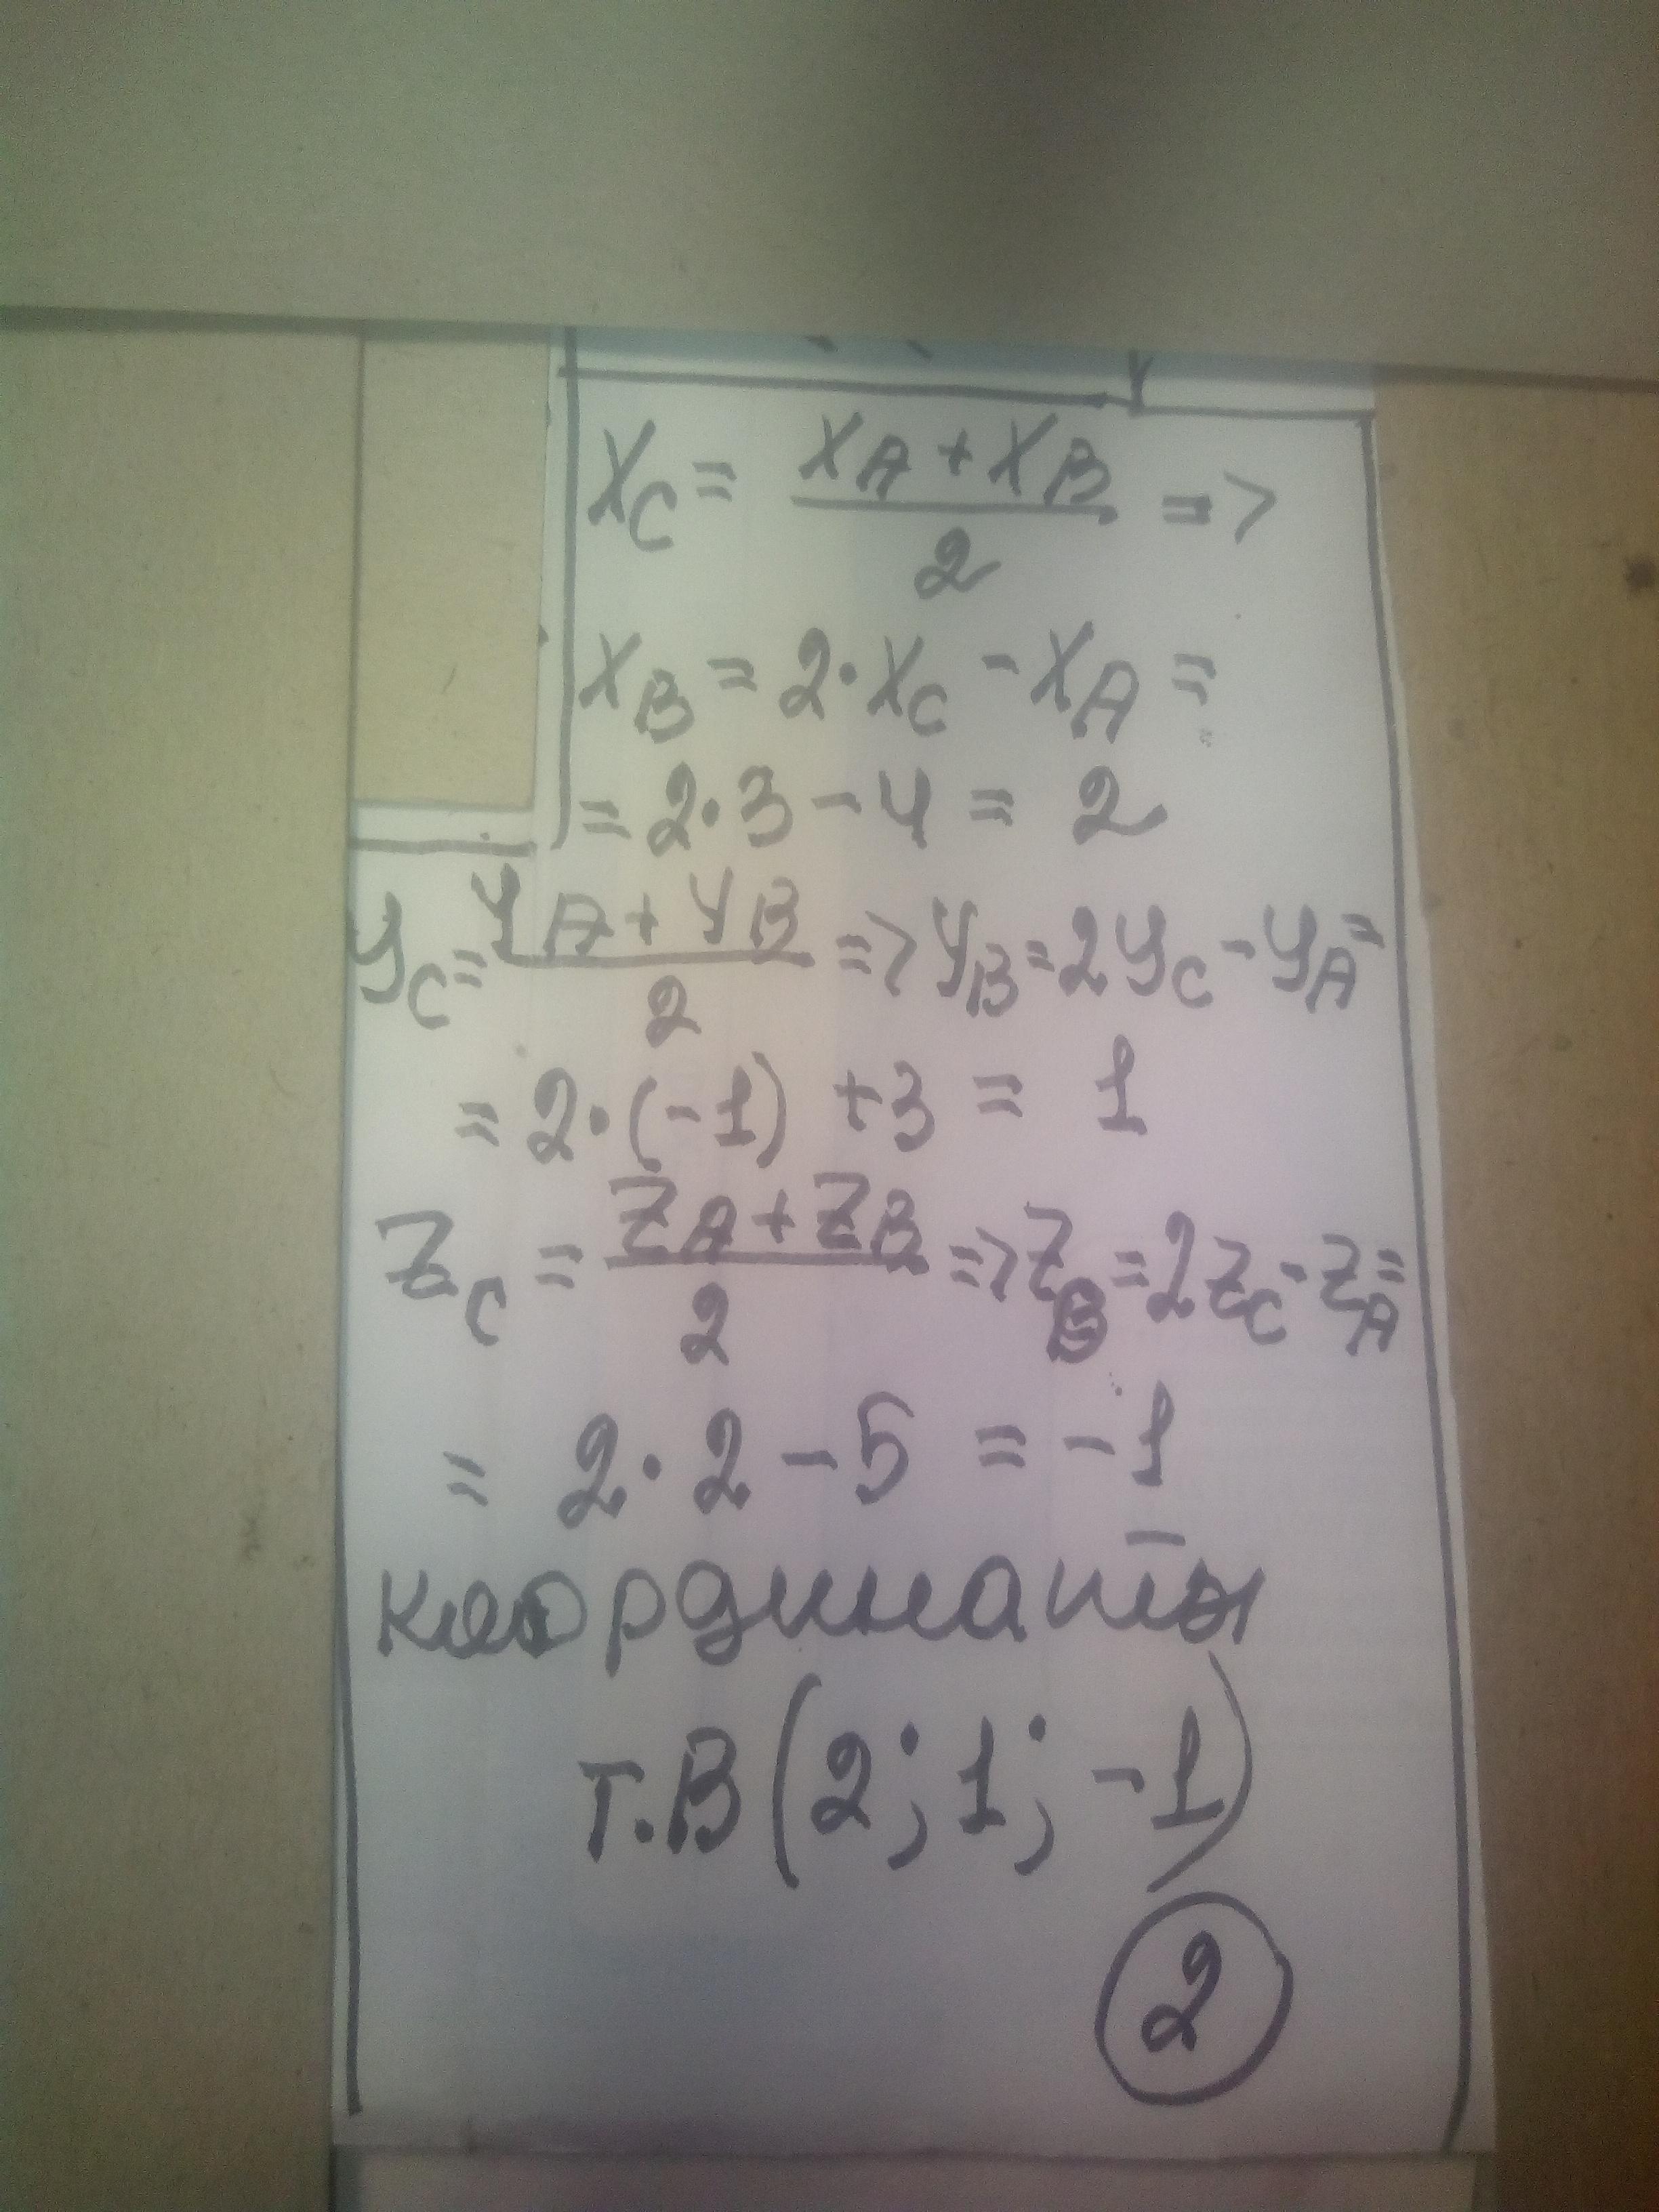 XC = (XA + XB)/2 =>
XB = 2·XC - XA =
= 2·3 - 4 = 2
YC = (YA + YB)/2 => YB = 2YC - YA =
= 2·(-1) +3 = 1
ZC = (ZA + ZB)/2 => ZB = 2ZC - ZA =
= 2·2 - 5 = -1
координаты
т.В (2; 1; -1)
2